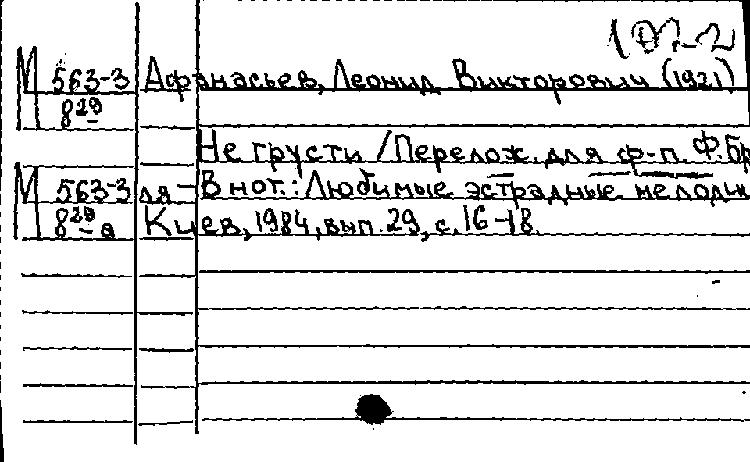 102-2
М 563-3 Афанасьев, Леонид Викторович (1921)
8 29
Не грусти / Перелож. для ф-п. Ф. Бр
М 563-3 ля – В нот.: Любимые эстрадные мелоди
8 29-а Киев, 1984, вып. 29, с. 16-18.